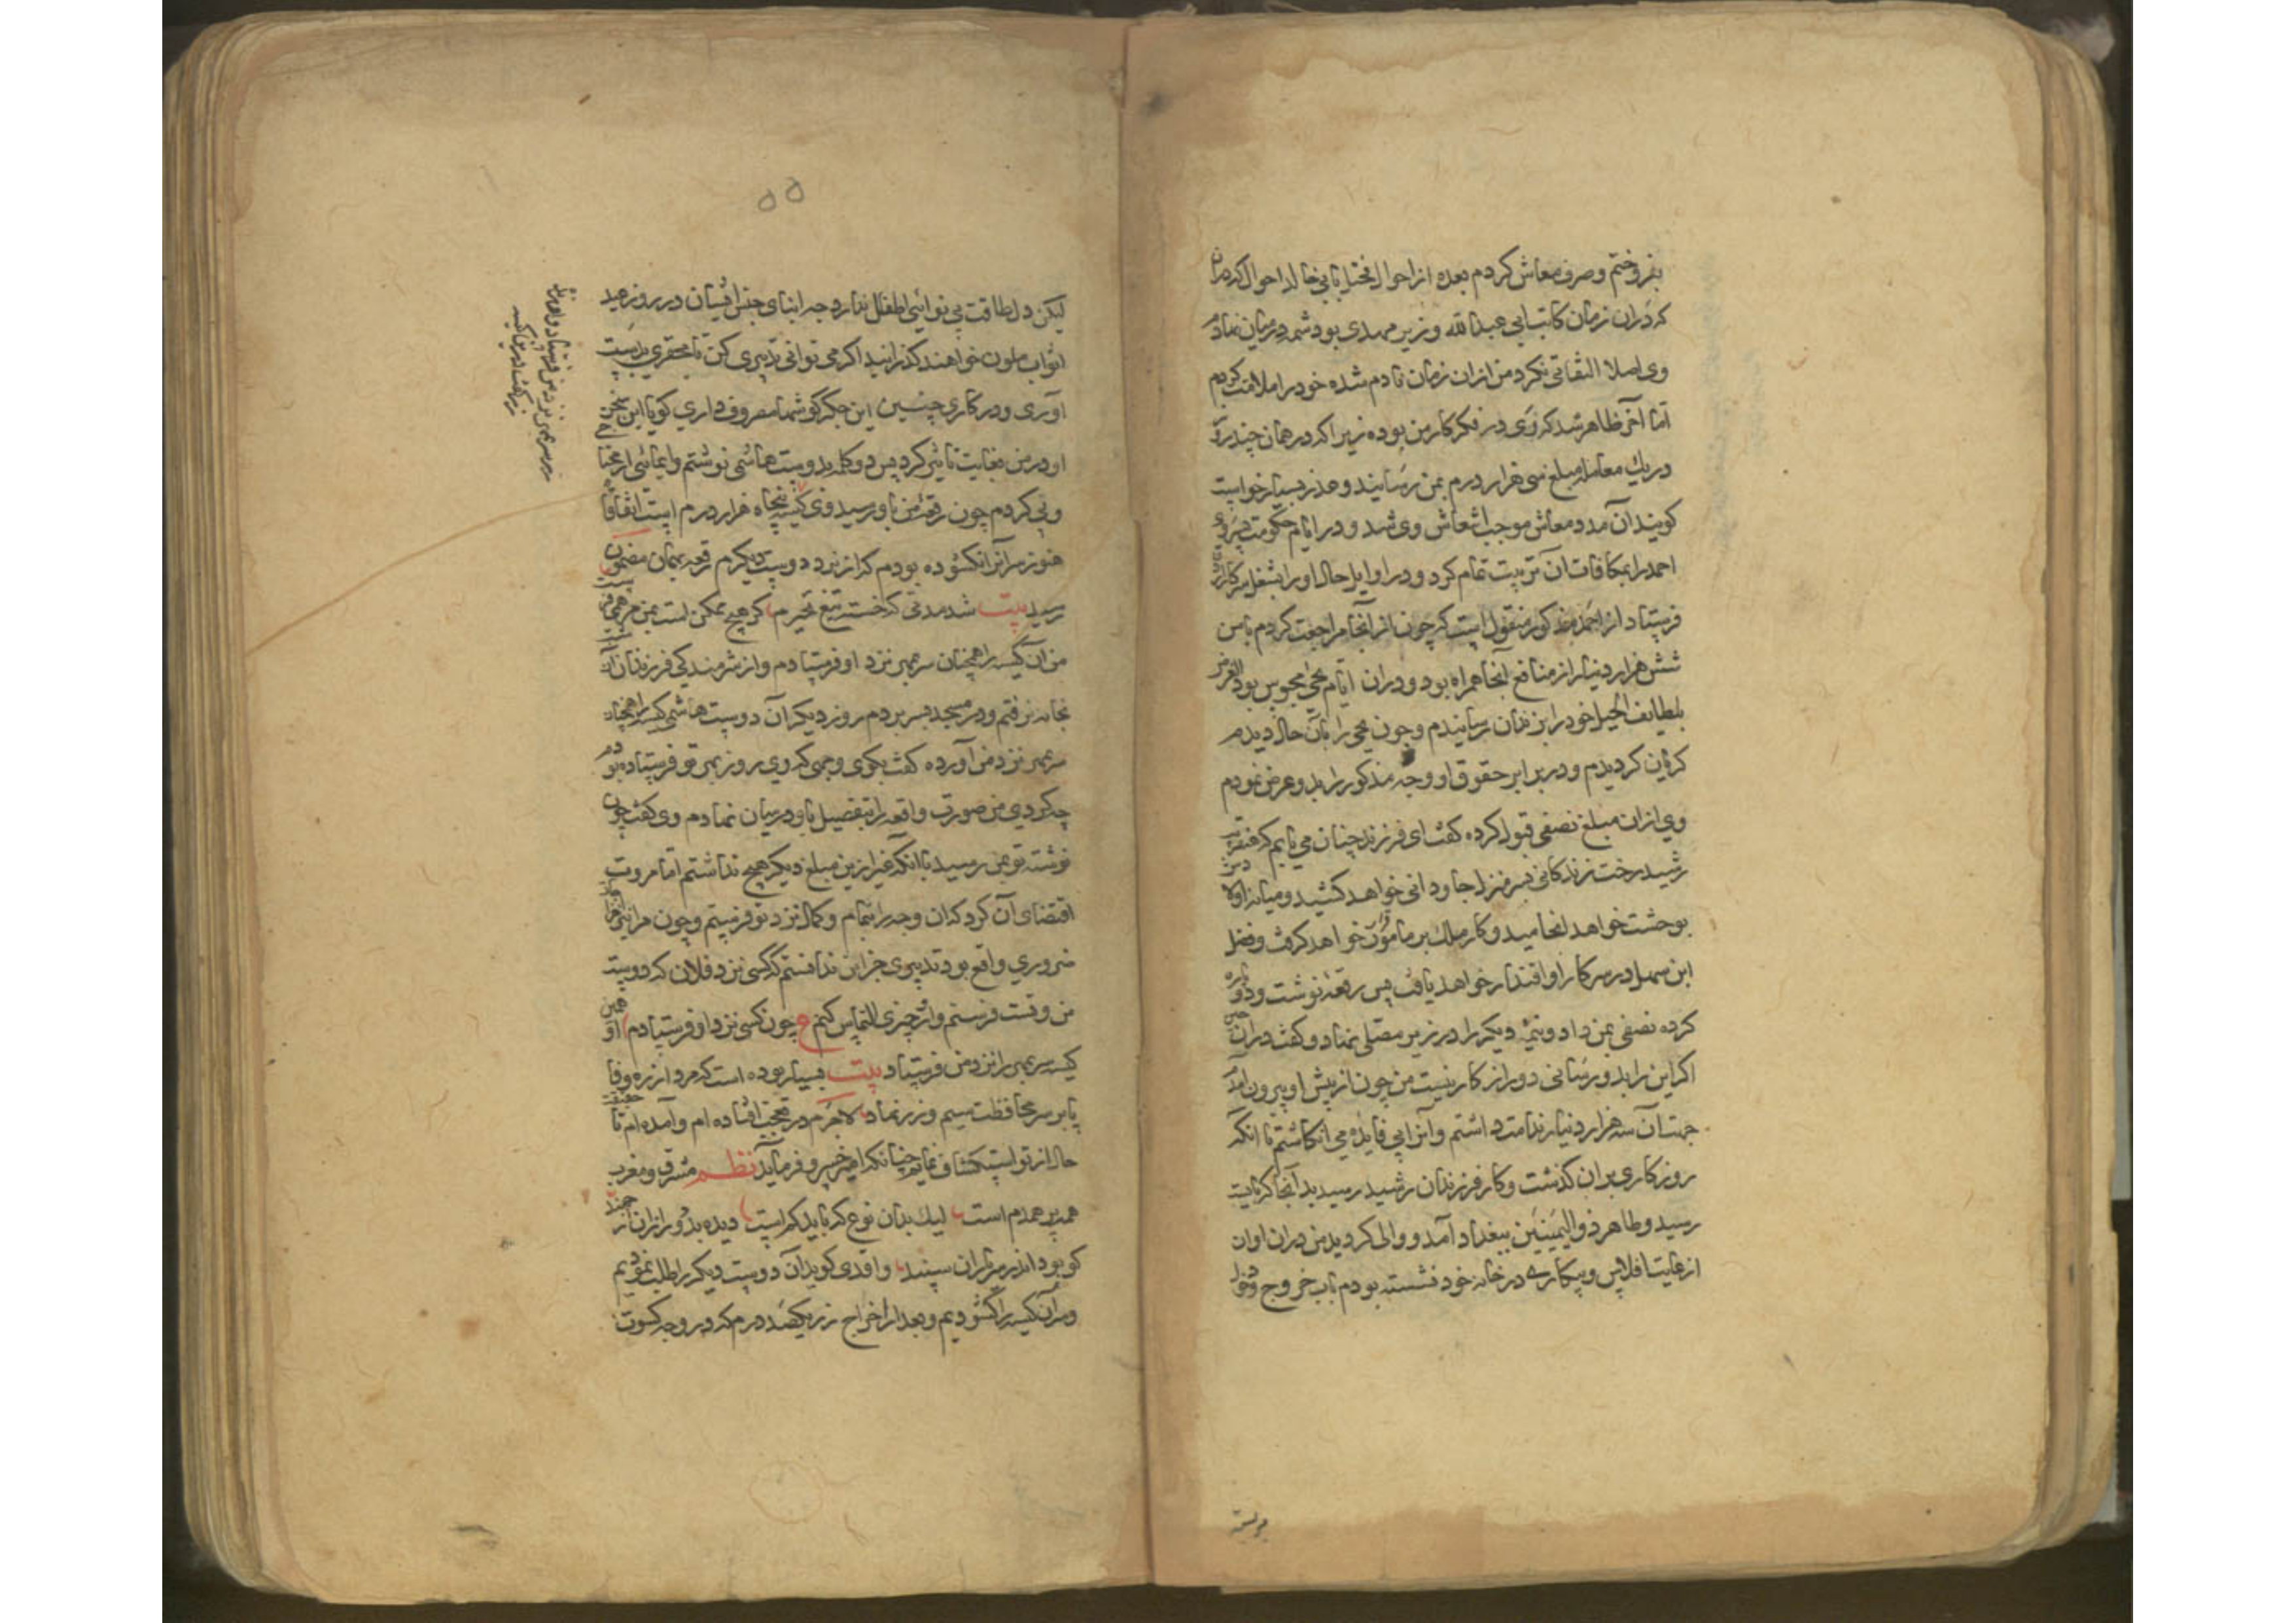 بفروختم و صرف معاش کردم بعده از احوال مختل با بی خالد احوال کذرماند
که دران زمان کاتب ابی عبدالله وزیر مهدی بود شمه در میان نهادم
وی اصلا التفاتی نکرد من ازان زمان نادم شده خود را ملامت کردم
اما آخر ظاهر شد که وی در فکر کار من بوده زیرا که در همان چند روز
در یک معامله مبلغ سی هزار درم بمن رسانیند و عذر بسیار خواست
کویند آن مدد معاش موجب انتعاش وی شد و در ایام حکومت پسر وی
احمد را بمکافات آن تربیت تمام کرد و در اوایل حال او را بشغل سرکاری
فرستاد از احمد مذکور منقول است که چون از آنجا مراجعت کردم با من
شش هزار دینار از منافع آنجا همراه بود و دران ایام یحیی محبوس بود القرض
بلطایف الحیل خود را بزندان رسانیدم و چون یحیی را بآن حال دیدم
کریان کردیدم و در برابر حقوق او وجه مذکور را بدو عرض نمودم
وی ازان مبلغ نصفی قبول کرده کفت ای فرزند چنان می یابم که عنقریب
رشید رخت زندکانی بسر منزل جاودانی خواهد کشید و میان اولاد
بوحشت خواهد انجامید و کار ملک بر مامون قرار خواهد کرفت و فضل
ابن سهل در سرکار او اقتدار خواهد یافت پس رقعه نوشت و دو پاره
کرده نصفی بمن داد و نیمه دیکر را در زیر مصلی نهاد و کفت دران حین
اکر این را بدو رسانی دور از کار نیست من چون از پیش او بیرون آمدم
جهت آن سه هزار دینار ندامت داشتم و آنرا بی فایده می انکاشتم تا انکه
روزکاری بران کذشت و کار فرزندان رشید رسید بد آنجا که بایست
رسید و طاهر ذوالیمینین ببغداد آمد و والی کردید من دران اوان
از غایت افلاس و بیکاری در خانه خود نشسته بودم باب خروج و دخول
بربسته
۵۵
لیکن دل طاقت بی نوائی اطفال ندارد چه ابنای جنس ایشان در روز عید
اثواب ملون خواهند کذرانید اکر می توانی تدبیری کن تا محقری بدست
آوری و در کاری چنین این جکر کوشها مصروف داری کویا این سخن
او در من بغایت تاثیر کرد پس دو کلمه بدوست هاشمی نوشتم و ایمائی از محنا
وبی کردم چون رقعه من باو رسید وی کیسه پنجاه هزار درم است اتفاقا
هنوز سر آنرا نکشوده بودم که از نزد دوست دیکرم رقعه بهمان مضمون
رسید بیت شد مدتی که خسته تیغ تحیرم کر هیچ ممکن است بمن مرهمی فرست
من آن کیسه را همچنان سربمهر نزد او فرستادم و از شرمندکی فرزندان آن شب
بخانه نرفتم و در مسجد بسر بردم روز دیکر آن دوست هاشمی کیسه را همچنان
سربمهر نزد من آورده کفت بکوی وجهی که وی روز بمن تو فرستاده بودم
چه کردی من صورت واقعه را بتفصیل باو در میان نهادم وی کفت چون
نوشته تو بمن رسید با انکه غیر ازین مبلغ دیکر هیچ نداشتم اما مروت
اقتضای آن کرد که ان وجه را بتمام و کمال نزد تو فرستم و چون مرا نیز
ضروری واقع بود تدبیری جز این ندانستم که کسی نزد فلان که دوست
من و تست فرستم و از و چیزی التماس کنم ع چون کسی نزد او فرستادم او همین
کیسه سربمهر را نزد من فرستاد بیت بسیار بوده است که مرد از ره وفا
پا بر سر محافظت سیم و زر نهاد لاجرم در تعجب افتاده ام و آمده ام تا حقیقت
حال از تو استکشاف نمایم چنانکه امیر خسرو فرماید نظم مشرق و مغرب
همه پر همدم است لیک بدان نوع که باید کم است دیده بد دور ازان ارجمند
کو بود اندر سر یاران سپند واقدی کوید آن دوست دیکر را طلب نمودیم
و سر آن کیسه را کشودیم و بعد از اخراج زر یکصد درم که در وجه کسوت